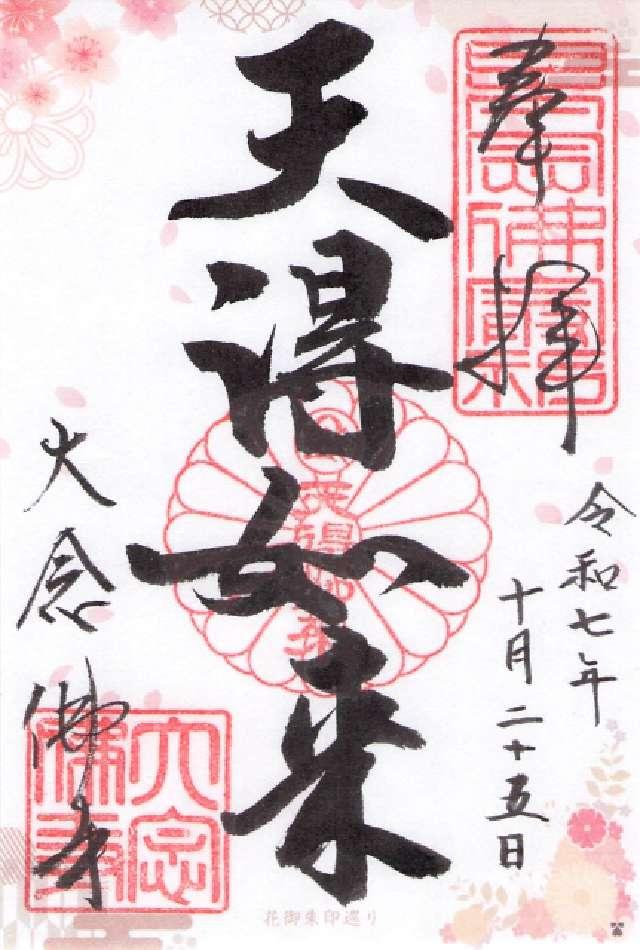 奉拝
令和七年
十月二十五日
天得如来
大念佛寺
大念佛寺
花御朱印巡り